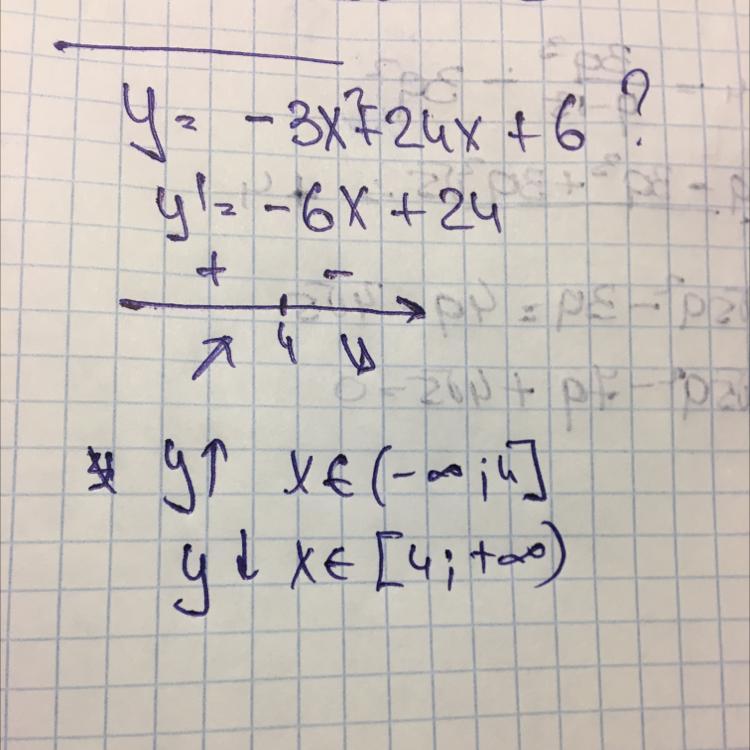 y = -3x²+24x + 6 ?
y' = -6x + 24
+ -
4
y↑ x∈(-∞;4]
y↓ x∈[4;+∞)